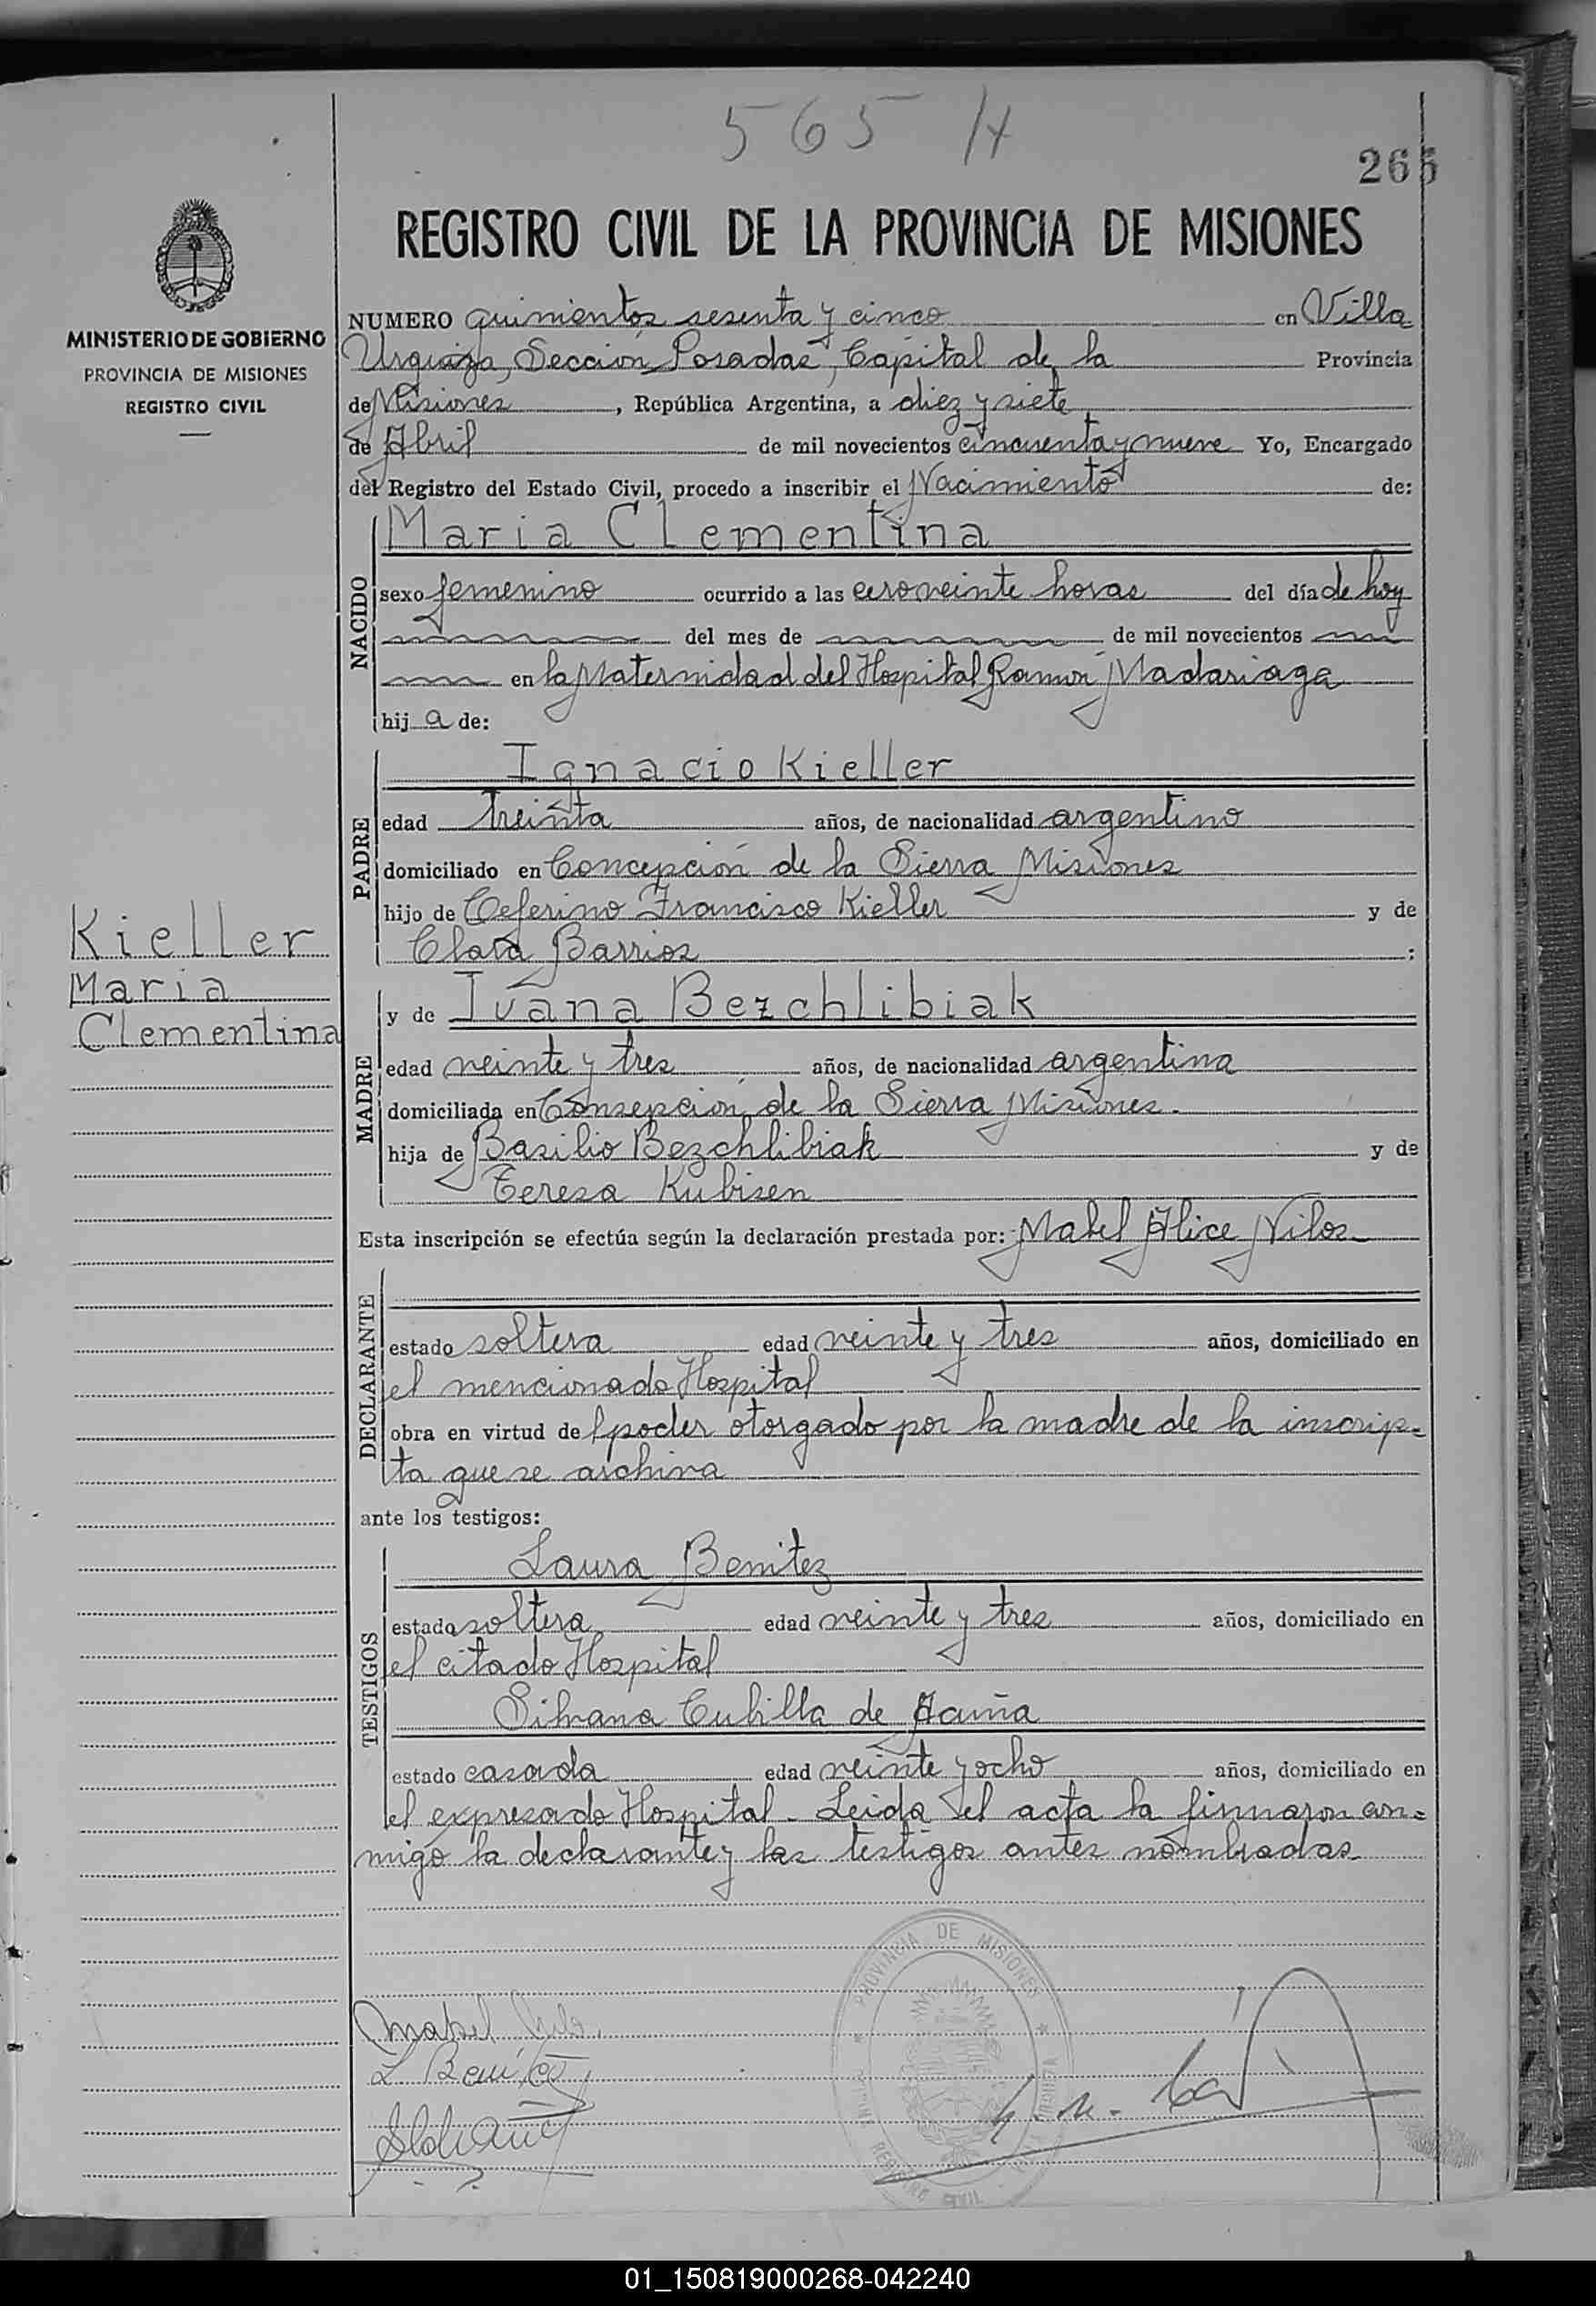 565 H
265
REGISTRO CIVIL DE LA PROVINCIA DE MISIONES
MINISTERIO DE GOBIERNO
PROVINCIA DE MISIONES
REGISTRO CIVIL
NUMERO quinientos sesenta y cinco en Villa
Urquiza, Sección Posadas, Capital de la Provincia
de Misiones, República Argentina, a diez y siete
de Abril de mil novecientos cincuenta y nueve Yo, Encargado
del Registro del Estado Civil, procedo a inscribir el Nacimiento de:
NACIDO
Maria Clementina
sexo femenino ocurrido a las cero veinte horas del día de hoy
del mes de de mil novecientos
en la Maternidad del Hospital Ramón Madariaga
hija de:
PADRE
Ignacio Kieller
edad treinta años, de nacionalidad argentino
domiciliado en Concepción de la Sierra Misiones
hijo de Ceferino Francisco Kieller y de
Clara Barrios :
Kieller
Maria
Clementina
MADRE
y de Ivana Bezchlibiak
edad veinte y tres años, de nacionalidad argentina
domiciliada en Consepción de la Sierra Misiones.
hija de Basilio Bezchlibiak y de
Teresa Kubisen
Esta inscripción se efectúa según la declaración prestada por: Mabel Alice Nilos
DECLARANTE
estado soltera edad veinte y tres años, domiciliado en
el mencionado Hospital
obra en virtud del poder otorgado por la madre de la inscrip-
ta que se archiva
ante los testigos:
TESTIGOS
Laura Benitez
estado soltera edad veinte y tres años, domiciliado en
el citado Hospital
Silvana Cubilla de Acuña
estado casada edad veinte y ocho años, domiciliado en
el expresado Hospital - Leida el acta la firmaron con-
migo la declarante y las testigos antes nombradas
PROVINCIA DE MISIONES
Mabel Nilos.
L. Benitez
01_150819000268-042240